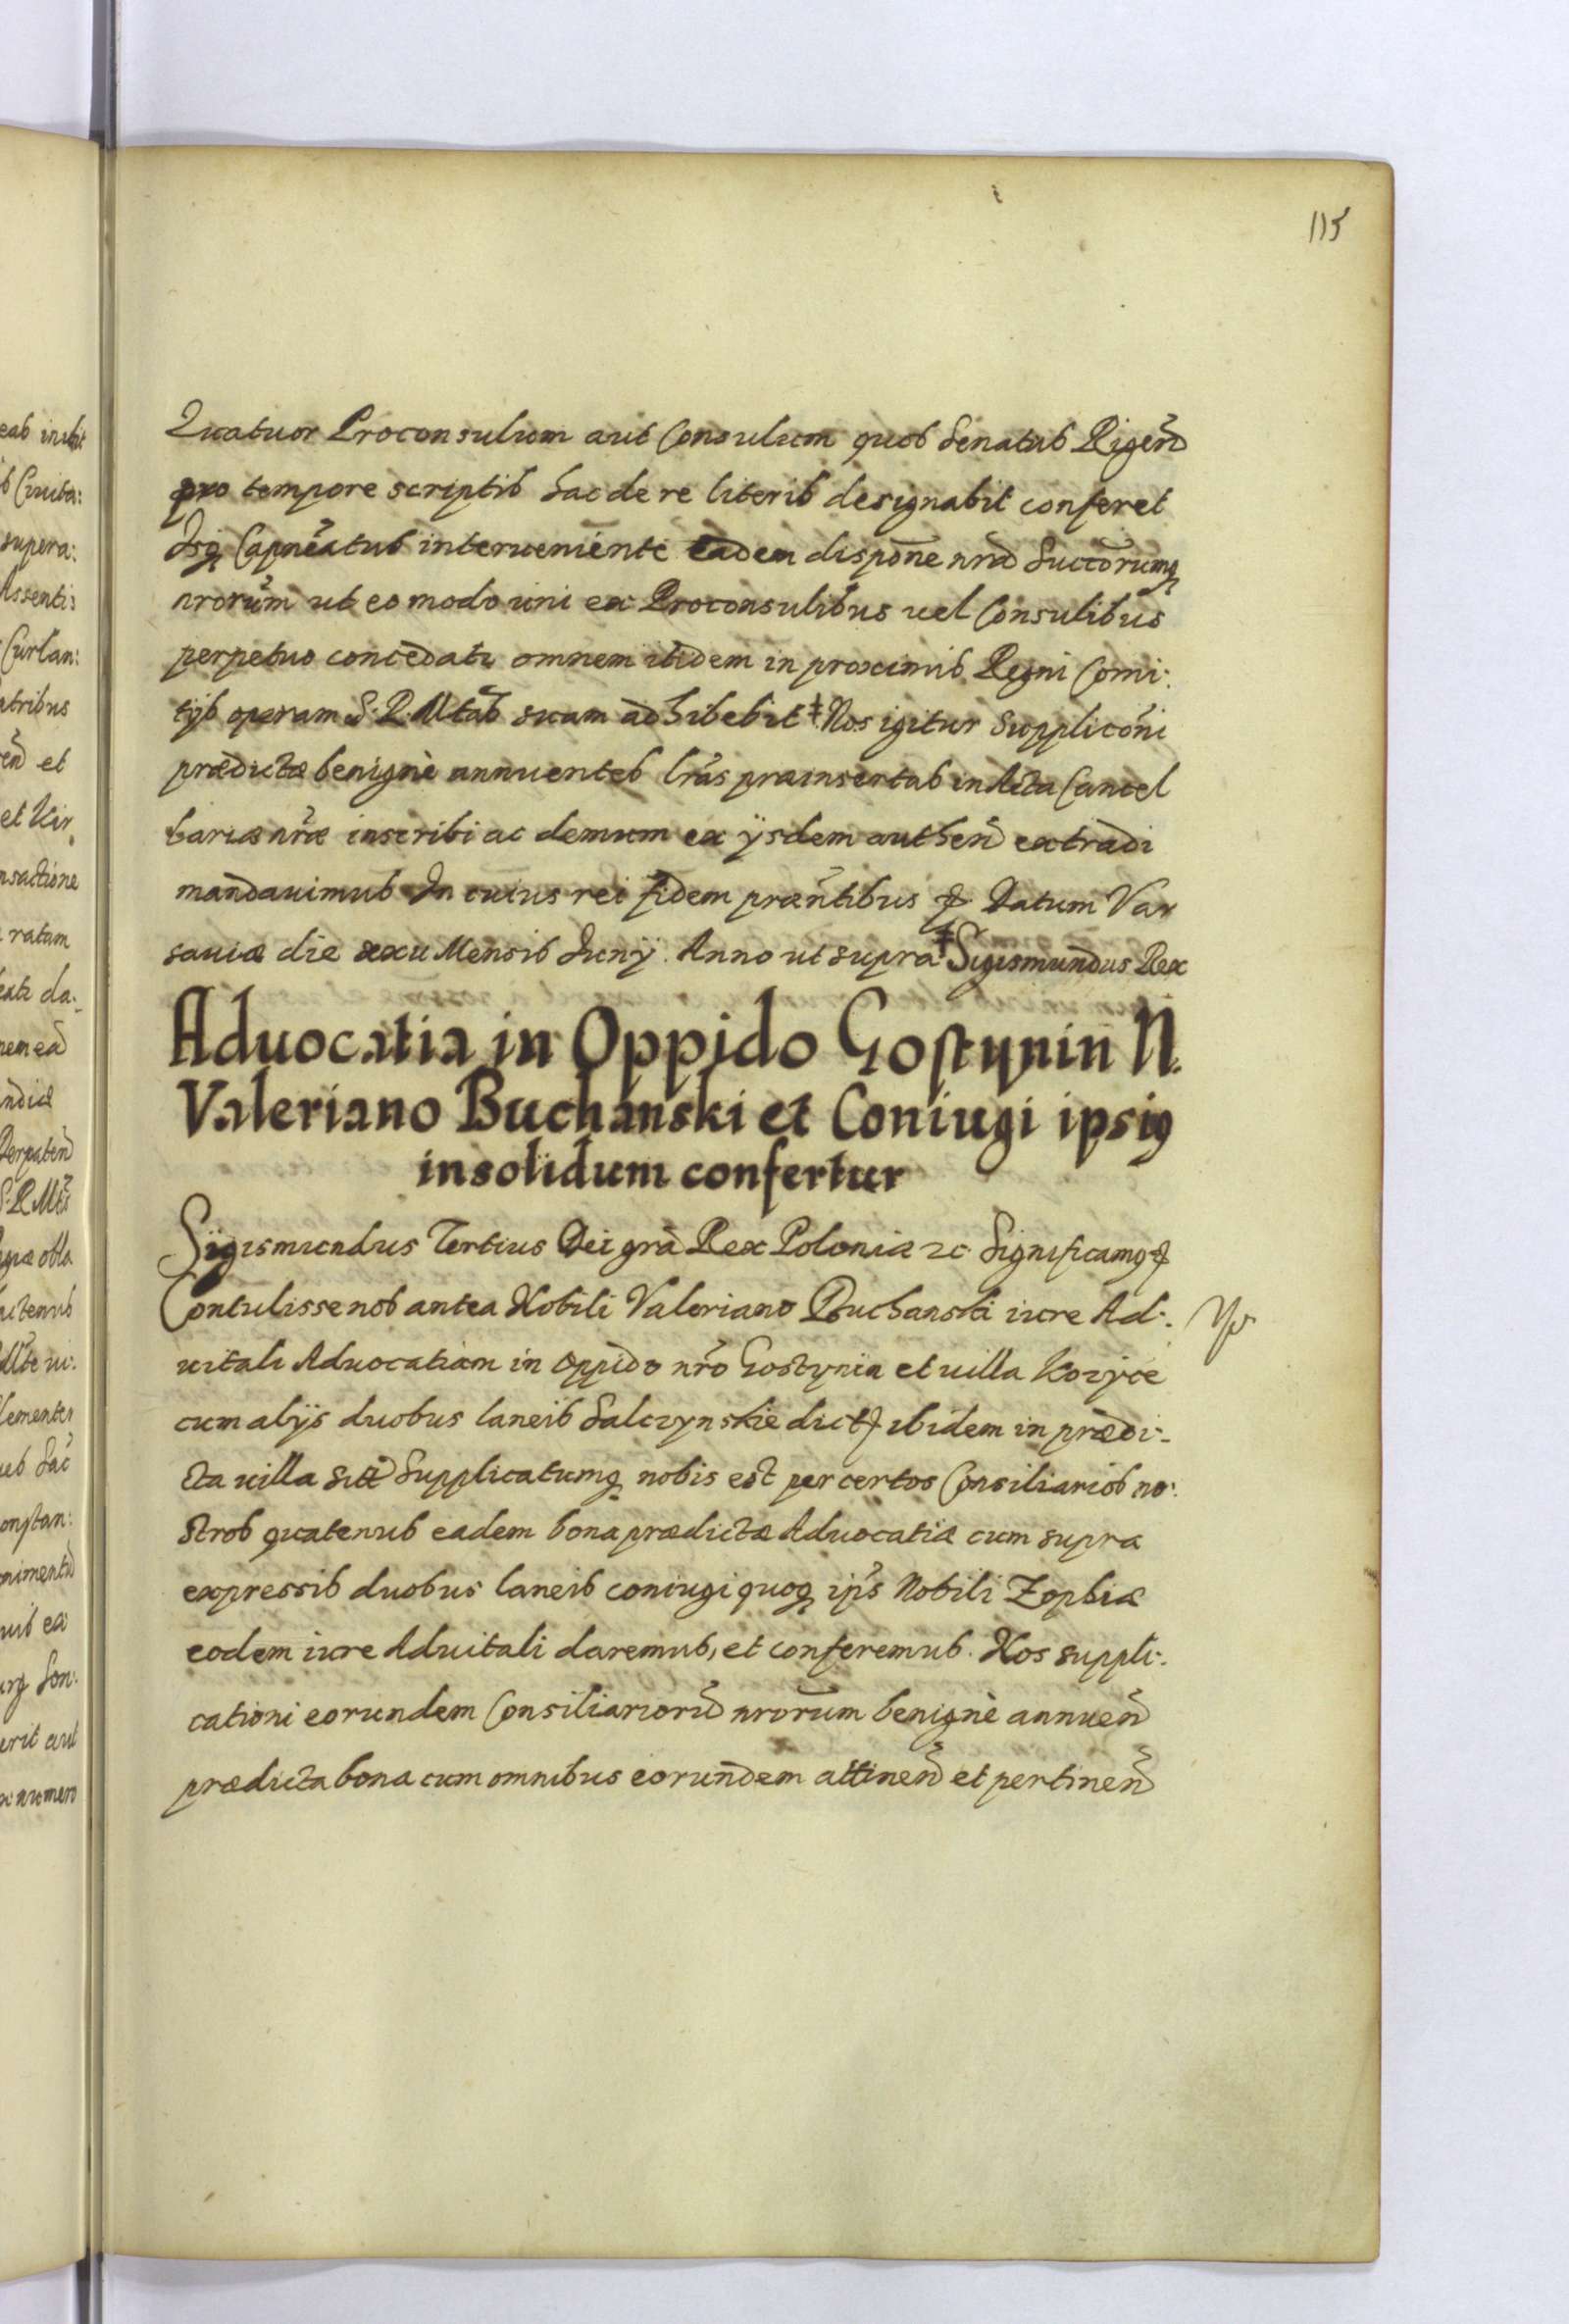 115
Quatuor Proconsulum aut Consulum quos Senatus Rigeñ
pro tempore scriptis hac de re literis designabit conferet
Isq Capñeatus interueniente eadem disponẽ nrã Succõrumq
nrorũm ut eo modo uni ex Proconsulibus uel Consulibus
perpetuo concedatr omnem itidem in proximis Regni Comi:
tijs operam S. R. Mtãs suam adhibebit ‡ Nos igitur Supplicõni
prædictæ benignè annuentes lrãs præinsertas in Acta Cancel
lariæ nrãe inscribi ac demum ex ijsdem autheñ extradi
mandauimus In cuius rei fidem præñtibus & Datum Var
sauiæ die xxu Mensis Junij. Anno ut supra ‡ Sigismundus Rex
Aduocatia in Oppido Gostynin N.
Valeriano Buchanski et Coniugi ipsig
insolidum confertur
Sigismundus Tertius Dei grã Rex Poloniæ zc Significamg &
Contulisse nos antea Nobili Valeriano Buchanski iure Ad:
uitali Aduocatiam in oppido nrõ Gostynin et uilla Kozyce
cum alijs duobus laneis Salczynskie dict ibidem in prædi:
cta uilla sit Supplicatumq nobis est per certos Consiliarios no:
stros quatenus eadem bona prædictæ Aduocatiæ cum supra
expressis duobus laneis coniugi quoq ips̃ Nobili Zophiæ
eodem iure Aduitali daremus, et conferemus. Nos suppli:
cationi eorundem Consiliariorũ nrorũm benignè annueñ
prædicta bona cum omnibus eorundem attineñ et pertineñ